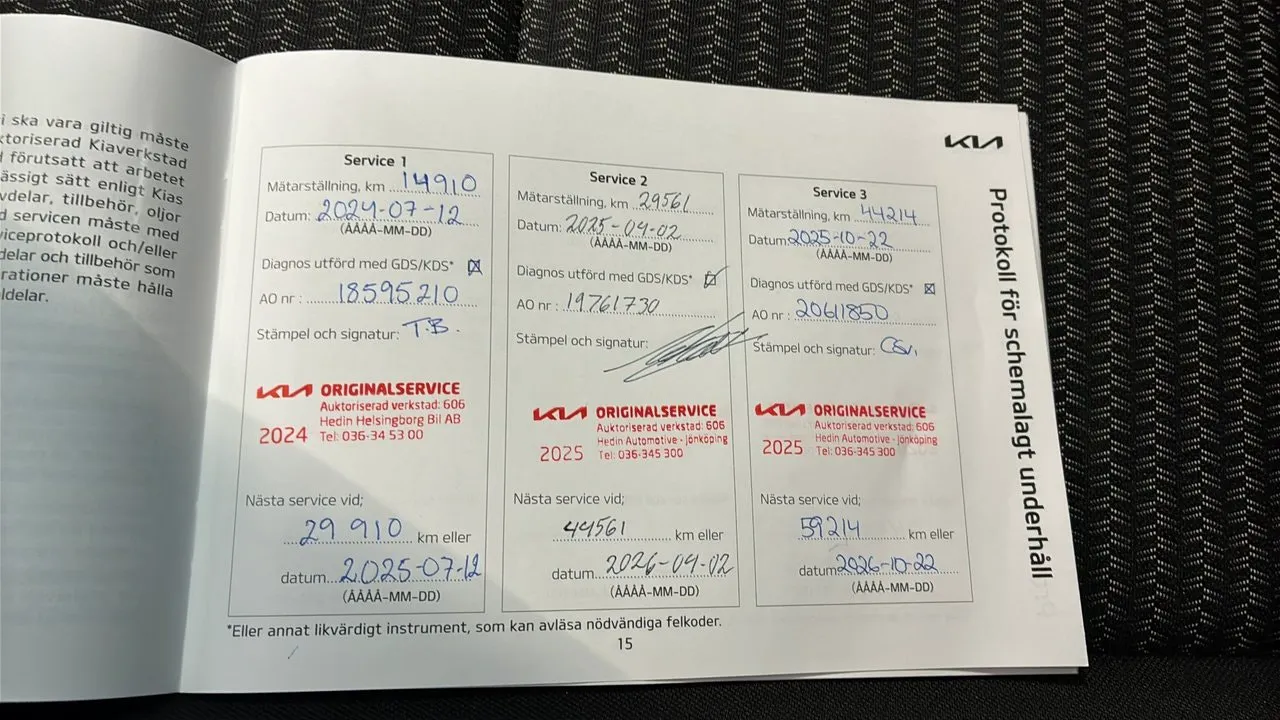 i ska vara giltig måste
ktoriserad Kiaverkstad
förutsatt att arbetet
ässigt sätt enligt Kias
vdelar, tillbehör, oljor
d servicen måste med
viceprotokoll och/eller
delar och tillbehör som
rationer måste hålla
ldelar.
KIA
Protokoll för schemalagt underhåll
Service 1
Mätarställning, km 14910
Datum: 2024-07-12
(ÅÅÅÅ-MM-DD)
Diagnos utförd med GDS/KDS* ☒
AO nr : 18595210
Stämpel och signatur: T.B.
KIA ORIGINALSERVICE
Auktoriserad verkstad: 606
Hedin Helsingborg Bil AB
2024 Tel: 036-34 53 00
Nästa service vid;
29 910 km eller
datum 2025-07-12
(ÅÅÅÅ-MM-DD)
Service 2
Mätarställning, km 29561
Datum: 2025-04-02
(ÅÅÅÅ-MM-DD)
Diagnos utförd med GDS/KDS* ☑
AO nr : 19761730
Stämpel och signatur:
KIA ORIGINALSERVICE
Auktoriserad verkstad: 606
Hedin Automotive - Jönköping
2025 Tel: 036-345 300
Nästa service vid;
44561 km eller
datum 2026-04-02
(ÅÅÅÅ-MM-DD)
Service 3
Mätarställning, km 44214
Datum 2025-10-22
(ÅÅÅÅ-MM-DD)
Diagnos utförd med GDS/KDS* ☒
AO nr : 20611850
Stämpel och signatur:
KIA ORIGINALSERVICE
Auktoriserad verkstad: 606
Hedin Automotive - Jönköping
2025 Tel: 036-345 300
Nästa service vid;
59214 km eller
datum 2026-10-22
(ÅÅÅÅ-MM-DD)
*Eller annat likvärdigt instrument, som kan avläsa nödvändiga felkoder.
15